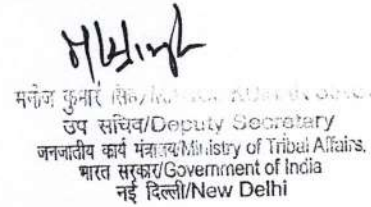 मनोज कुमार
उप सचिव/Deputy Secretary
जनजातीय कार्य मंत्रालय/Ministry of Tribal Affairs,
भारत सरकार/Government of India
नई दिल्ली/New Delhi